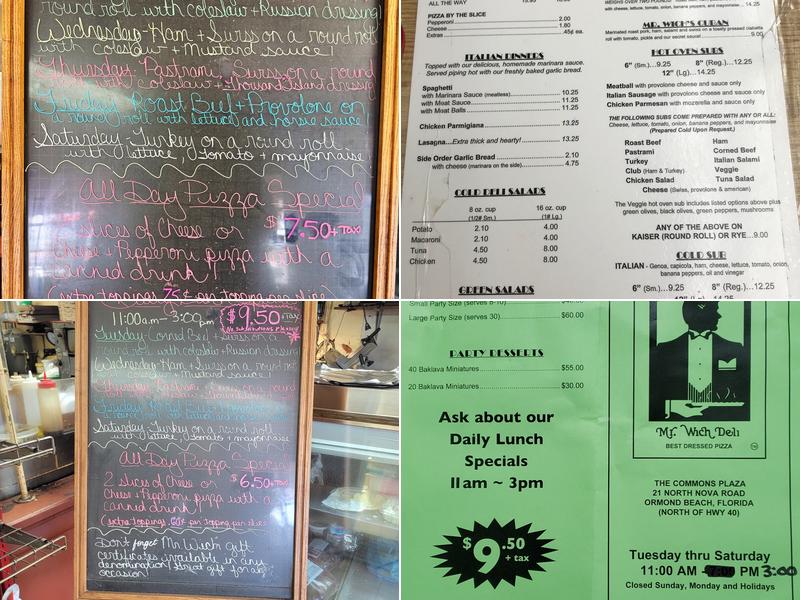 round roll with coleslaw + Russian dressing
Wednesday - Ham + Swiss on a round roll
with coleslaw + Mustard sauce!
Thursday - Pastrami, Swiss on a round
roll with coleslaw + Thousand Island dressing
Friday - Roast Beef + Provolone on
a round roll with lettuce and horsie sauce
Saturday - Turkey on a round roll
with lettuce, tomato + mayonnaise
All Day Pizza Special
slices of Cheese or
$7.50 + TAX
Cheese + Pepperoni pizza with a
canned drink!
(extra toppings 75¢ per topping per slice)
ALL THE WAY
PIZZA BY THE SLICE
Pepperoni 2.00
Cheese 1.80
Extras .45¢ ea.
ITALIAN DINNERS
Topped with our delicious, homemade marinara sauce.
Served piping hot with our freshly baked garlic bread.
Spaghetti
with Marinara Sauce (meatless) 10.25
with Meat Sauce 11.25
with Meat Balls 11.25
Chicken Parmigiana 13.25
Lasagna....Extra thick and hearty! 13.25
Side Order Garlic Bread 2.10
with cheese (marinara on the side) 4.75
COLD DELI SALADS
8 oz. cup 16 oz. cup
(1/2# Sm.) (1# Lg.)
Potato 2.10 4.00
Macaroni 2.10 4.00
Tuna 4.50 8.00
Chicken 4.50 8.00
GREEN SALADS
with cheese, lettuce, tomato, onion, banana peppers, and mayonnaise 14.25
MR. WICH'S CUBAN
Marinated roast pork, ham, salami and swiss on a toasty pressed ciabatta
roll with tomato, pickle and our secret sauce! 9.00
HOT OVEN SUBS
6" (Sm.)...9.25 8" (Reg.)...12.25
12" (Lg)...14.25
Meatball with provolone cheese and sauce only
Italian Sausage with provolone cheese and sauce only
Chicken Parmesan with mozerella and sauce only
THE FOLLOWING SUBS COME PREPARED WITH ANY OR ALL:
Cheese, lettuce, tomato, onion, banana peppers, and mayonnaise
(Prepared Cold Upon Request.)
Roast Beef Ham
Pastrami Corned Beef
Turkey Italian Salami
Club (Ham & Turkey) Veggie
Chicken Salad Tuna Salad
Cheese (Swiss, provolone & american)
The Veggie hot oven sub includes listed options above plus
green olives, black olives, green peppers, mushrooms
ANY OF THE ABOVE ON
KAISER (ROUND ROLL) OR RYE...9.00
COLD SUB
ITALIAN - Genoa, capicola, ham, cheese, lettuce, tomato, onion,
banana peppers, oil and vinegar
6" (Sm.)...9.25 8" (Reg.)...12.25
12" (Lg)...14.25
11:00 a.m - 3:00 pm
$9.50 + TAX
No Substitutions Please!
Tuesday - Corned Beef + Swiss on a
round roll with coleslaw + Russian dressing
Wednesday - Ham + Swiss on a round roll
with coleslaw + Mustard sauce!
Thursday - Pastrami, Swiss on a round
roll with coleslaw + Thousand Island dressing
Friday - Roast Beef + Provolone on
a round roll with lettuce and horsie sauce
Saturday - Turkey on a round roll
with lettuce, tomato + mayonnaise
All Day Pizza Special
2 slices of Cheese or
$6.50 + TAX
Cheese + Pepperoni pizza with a
canned drink!
(extra toppings 60¢ per topping per slice)
Don't forget Mr. Wich gift
certificates available in any
denomination! Great gift for any
occasion!
Small Party Size (serves 8-10)
Large Party Size (serves 30) $60.00
PARTY DESSERTS
40 Baklava Miniatures $55.00
20 Baklava Miniatures $30.00
Ask about our
Daily Lunch
Specials
11am ~ 3pm
$9.50
+ tax
Mr. Wich Deli
BEST DRESSED PIZZA
THE COMMONS PLAZA
21 NORTH NOVA ROAD
ORMOND BEACH, FLORIDA
(NORTH OF HWY 40)
Tuesday thru Saturday
11:00 AM - 7:00 PM 3:00
Closed Sunday, Monday and Holidays